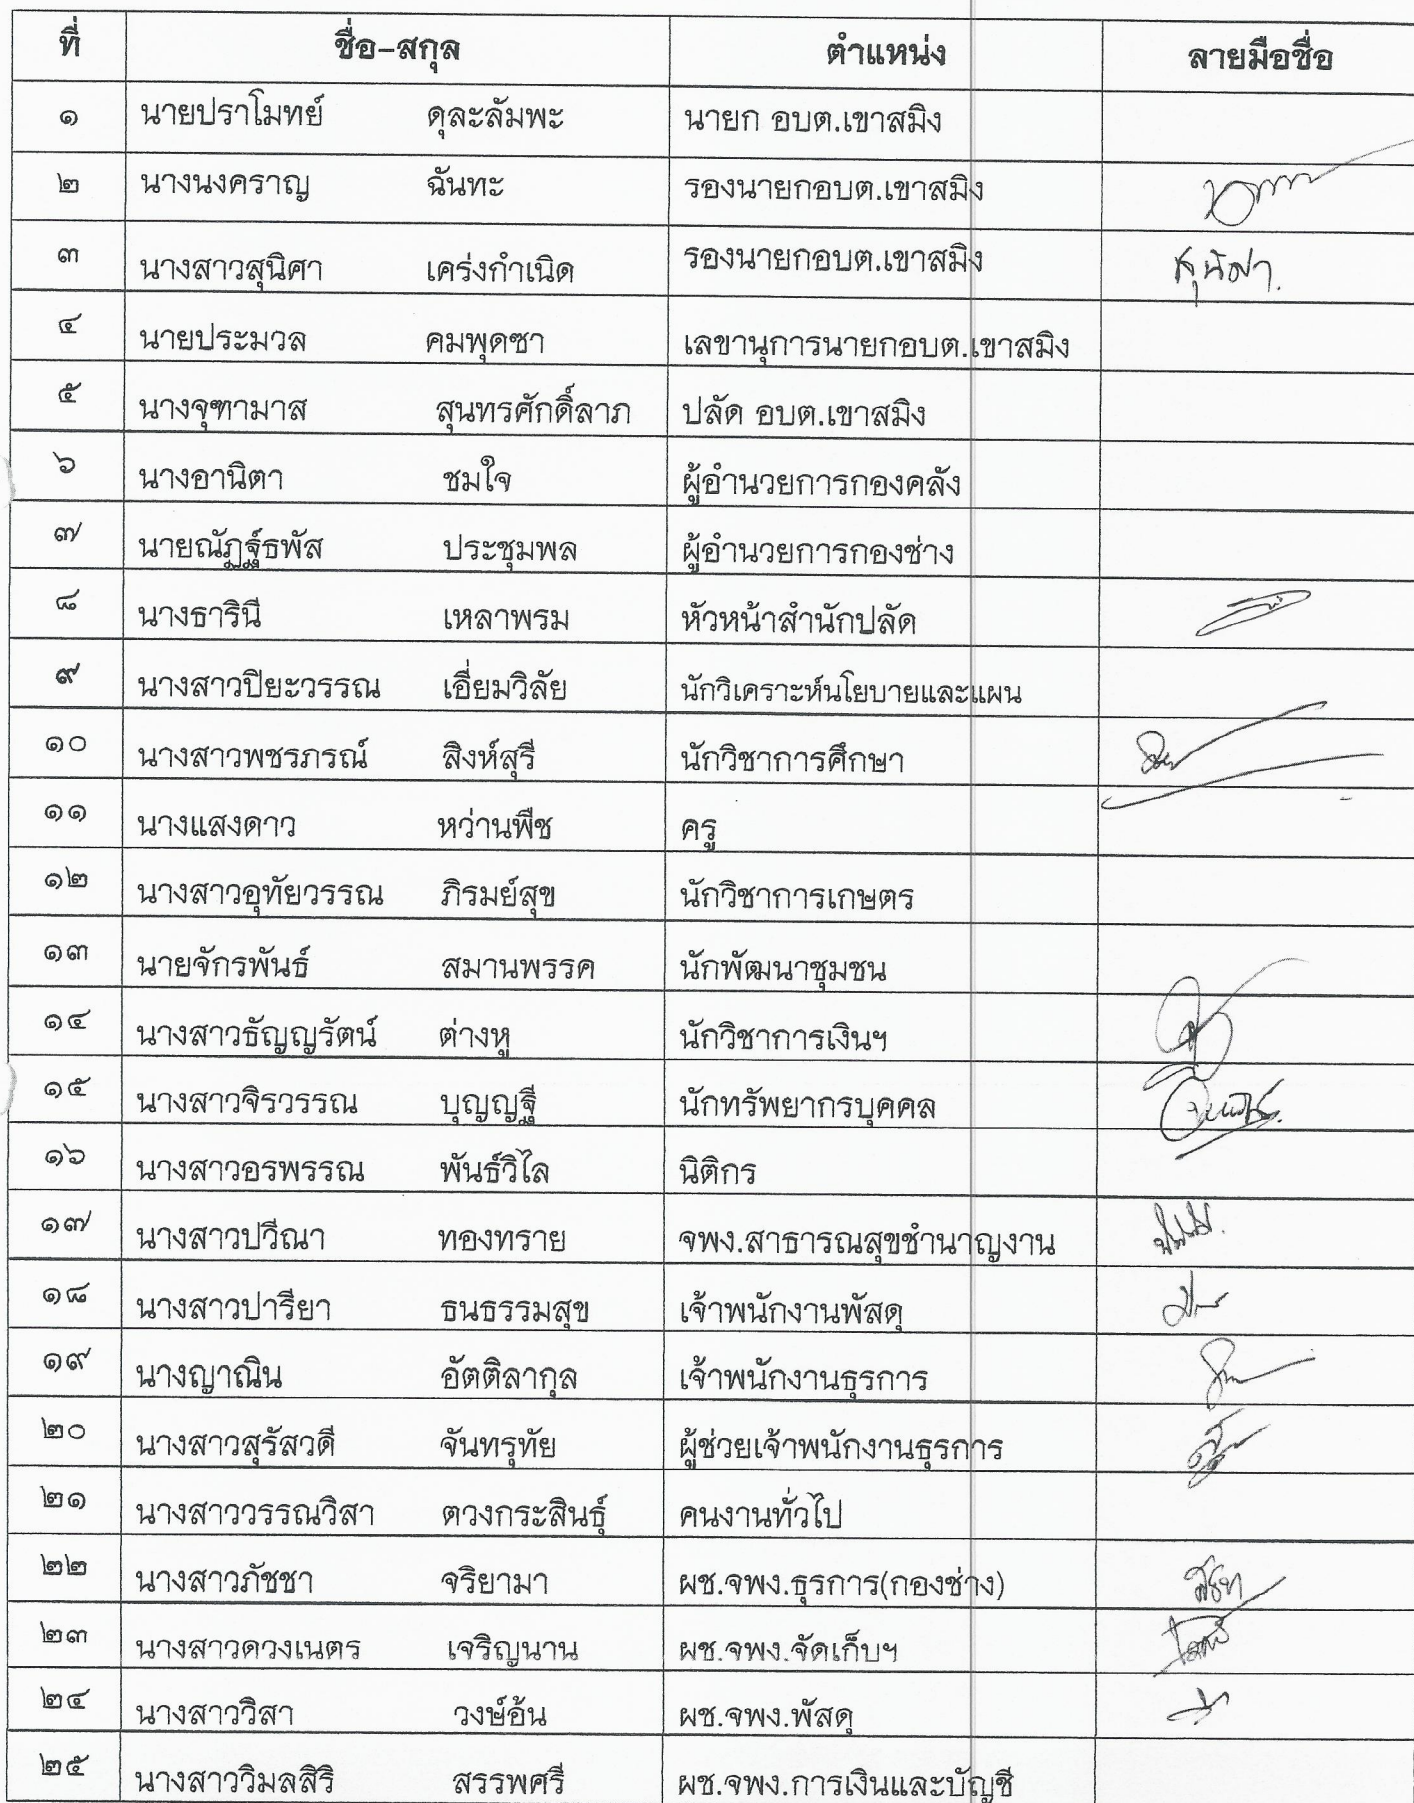 ที่ ชื่อ-สกุล ตำแหน่ง ลายมือชื่อ
๑ นายปราโมทย์ ดุละลัมพะ นายก อบต.เขาสมิง
๒ นางนงคราญ ฉันทะ รองนายกอบต.เขาสมิง
๓ นางสาวสุนิศา เคร่งกำเนิด รองนายกอบต.เขาสมิง สุนิศา.
๔ นายประมวล คมพุดซา เลขานุการนายกอบต.เขาสมิง
๕ นางจุฑามาส สุนทรศักดิ์ลาภ ปลัด อบต.เขาสมิง
๖ นางอานิตา ชมใจ ผู้อำนวยการกองคลัง
๗ นายณัฏฐ์ธพัส ประชุมพล ผู้อำนวยการกองช่าง
๘ นางธารินี เหลาพรม หัวหน้าสำนักปลัด
๙ นางสาวปิยะวรรณ เอี่ยมวิลัย นักวิเคราะห์นโยบายและแผน
๑๐ นางสาวพชรภรณ์ สิงห์สุรี นักวิชาการศึกษา
๑๑ นางแสงดาว หว่านพืช ครู
๑๒ นางสาวอุทัยวรรณ ภิรมย์สุข นักวิชาการเกษตร
๑๓ นายจักรพันธ์ สมานพรรค นักพัฒนาชุมชน
๑๔ นางสาวธัญญรัตน์ ต่างหู นักวิชาการเงินฯ
๑๕ นางสาวจิรวรรณ บุญญฐี นักทรัพยากรบุคคล
๑๖ นางสาวอรพรรณ พันธ์วิไล นิติกร
๑๗ นางสาวปวีณา ทองทราย จพง.สาธารณสุขชำนาญงาน
๑๘ นางสาวปารียา ธนธรรมสุข เจ้าพนักงานพัสดุ
๑๙ นางญาณิน อัตติลากุล เจ้าพนักงานธุรการ
๒๐ นางสาวสุรัสวดี จันทรุทัย ผู้ช่วยเจ้าพนักงานธุรการ
๒๑ นางสาววรรณวิสา ตวงกระสินธุ์ คนงานทั่วไป
๒๒ นางสาวภัชชา จริยามา ผช.จพง.ธุรการ(กองช่าง)
๒๓ นางสาวดวงเนตร เจริญนาน ผช.จพง.จัดเก็บฯ
๒๔ นางสาววิสา วงษ์อ้น ผช.จพง.พัสดุ
๒๕ นางสาววิมลสิริ สรรพศรี ผช.จพง.การเงินและบัญชี